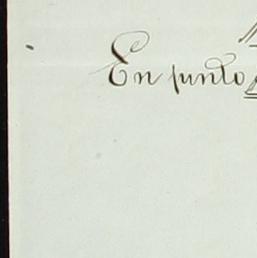 En punto